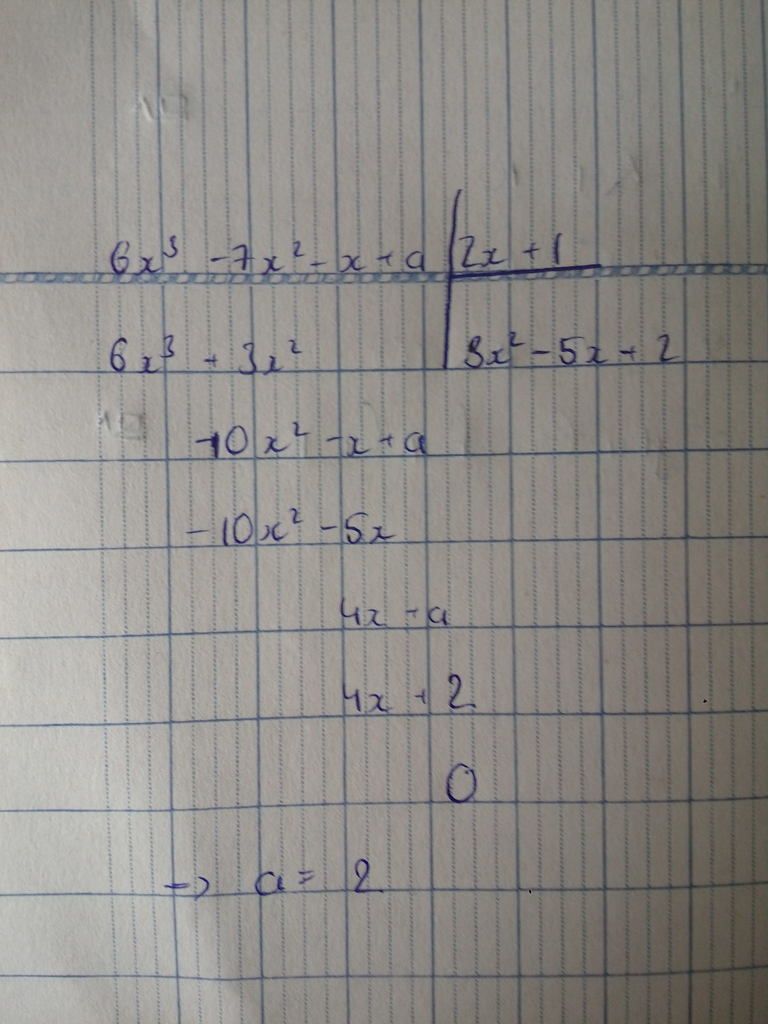 6x³ -7x² - x + a | 2x + 1
6x³ + 3x² | 3x² - 5x + 2
-10x² - x + a
-10x² - 5x
4x + a
4x + 2
0
=> a = 2